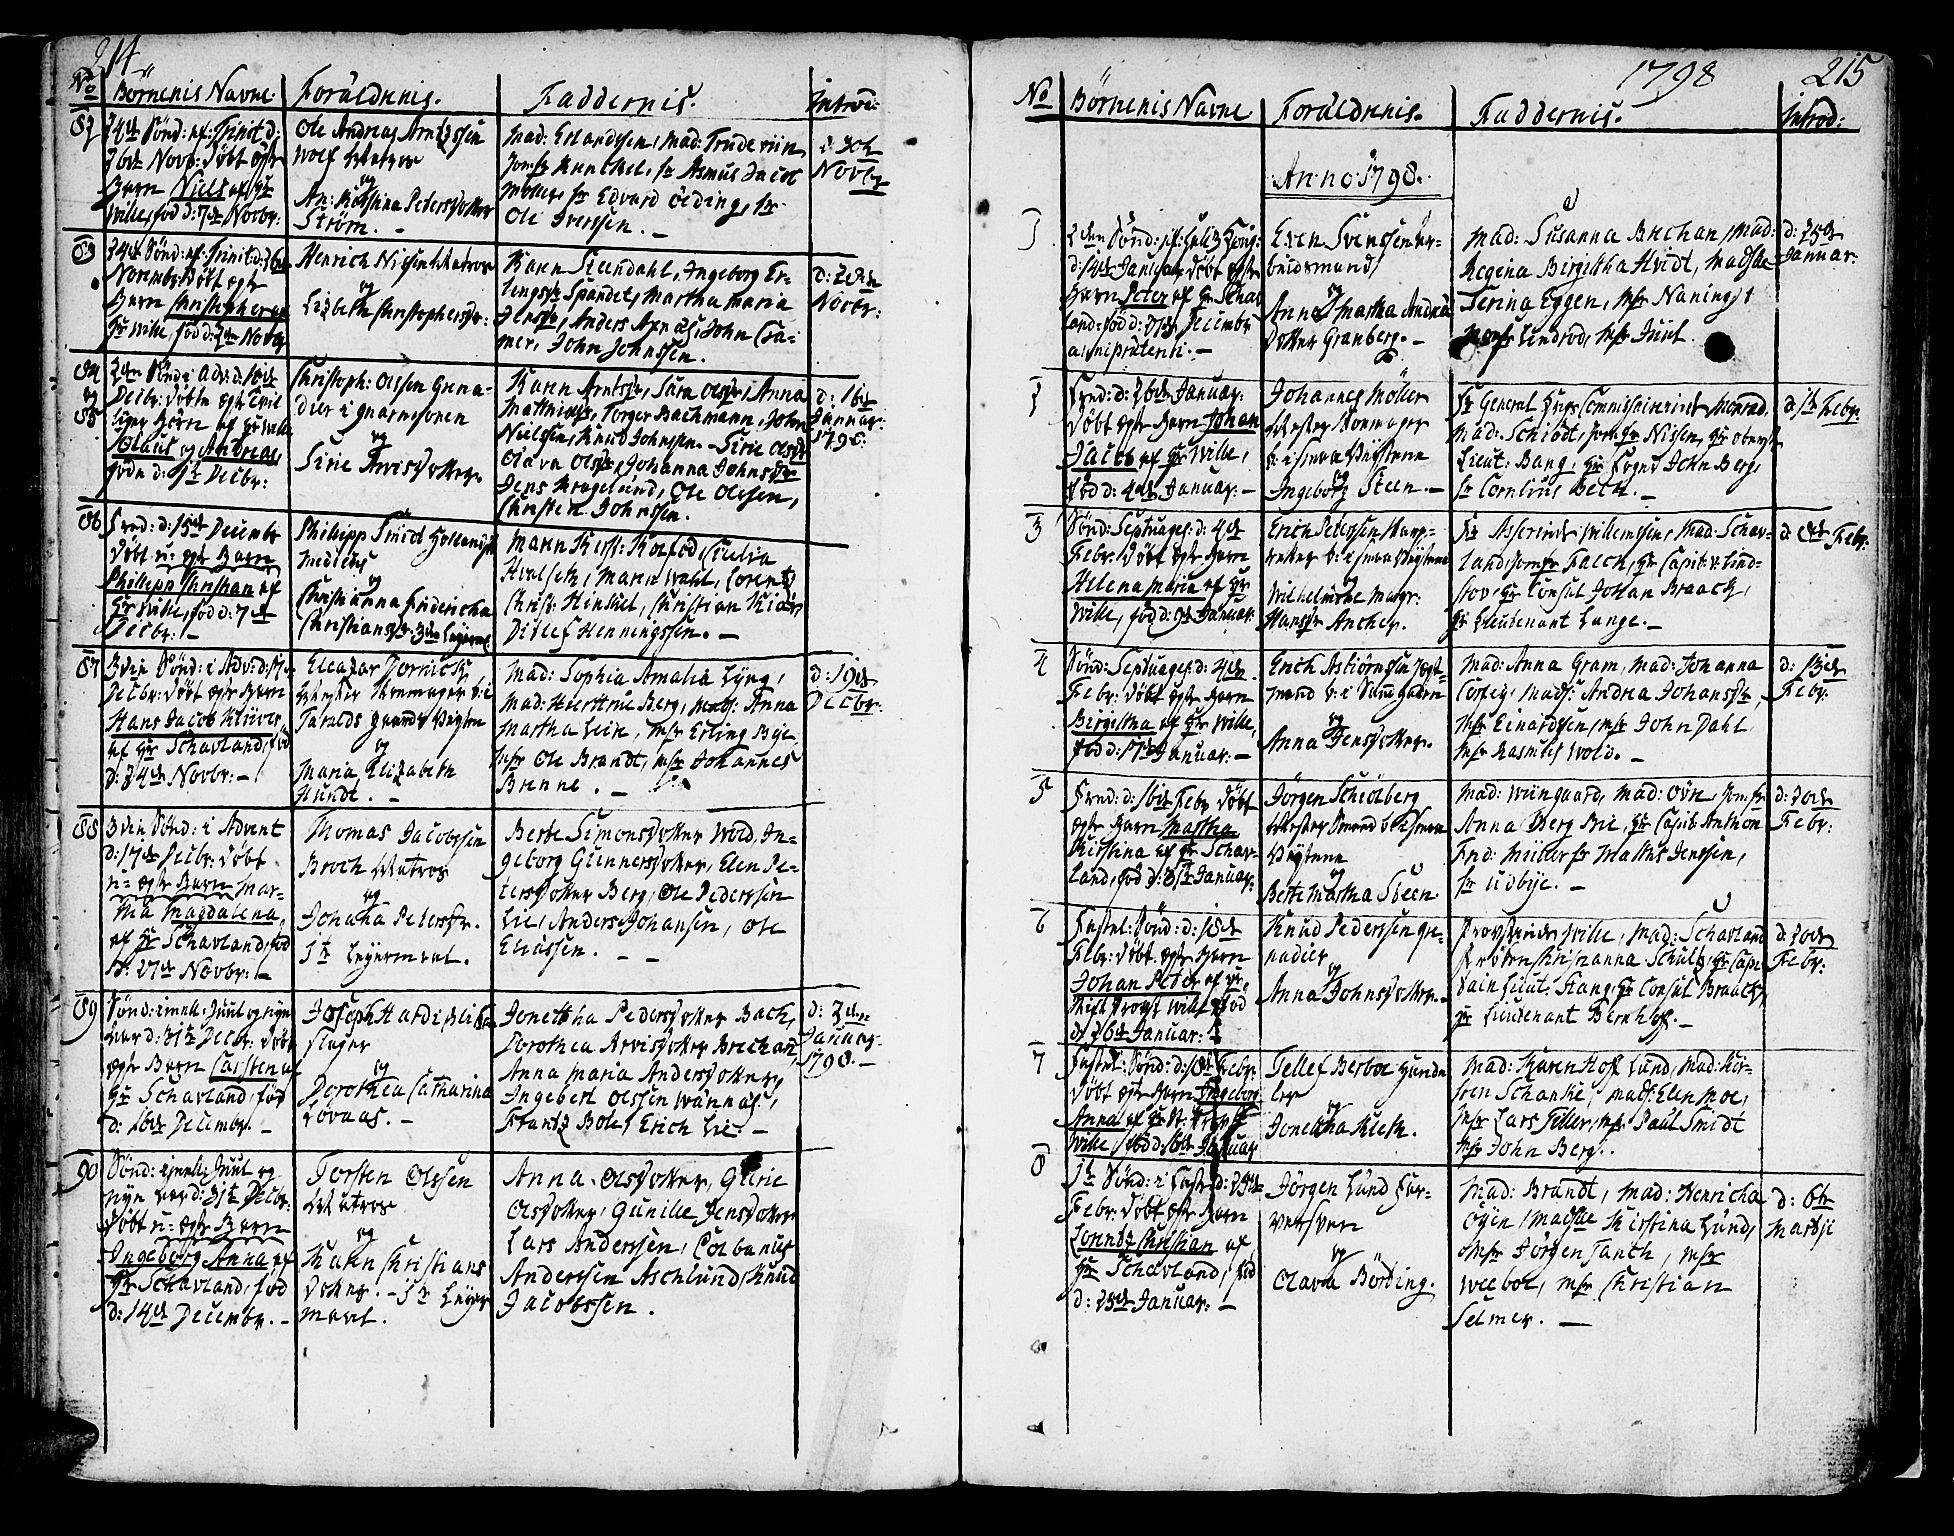 214
No
Børnenis Navne.
Forældrenis.
Faddernis.
Introd:
82
24de Sønd: ef: Trinit: d:
26de Novb: Døbt ægte
Barn Niels af Hr
Wille, fød d: 7de Novbr:
Ole Andreas Arntzssen
Wolf Matros
og
An: Kirstina Peders Dotter
Strøm. -
Mad: Erlandsen, Mad:
Jomfr Kunckel, Hr Asmus Jacob
Møller, Hr Edvard Ording, Hr
Ole Iverssen. -
d: 30te
Novbr
83
24de Sønd: ef: Trinit: d: 26de
Novembr Døbt ægte
Barn Christopher af
Hr Wille, fød d: 2den Novbr
Henrich Nilsen Matros
og
Lisbeth Christophersdr:
Karen Stendahl, Ingeborg Er-
lingsdr Spandet, Martha Maria
Jensdr, Anders Axnæs, John Cra-
mer, John Johnssen.
d:
Novbr:
84
og
85
2den Sønd: i Adv: d: 10de
Decbr: Døbte ægte Tvil-
linger Børn af Hr Wille
Olaus og Andreas,
fødde d: 9de Decbr:
Christoph: Olssen Grena-
dier i Guarnisonen
og
Sirie Arvisdotter.
Karen Arntsdr, Sara Olsdr, Anna
Matthiasdr, Torger Bachmann, John
Nielssen, Knud Johnsen. - Sirie Olsdr
Olava Olsdr, Johanna Johnsdr
Jens Kragelund, Ole Olssen,
Christen Johnssen.
d: 16de
Januar:
1798.
86
Fred: d: 15de Decembr
Døbt u: ægte Barn
Phillipp Christian af
Hr Wille, fød d: 7de
Decbr: -
Phillipp Smidt
Medicus
og
Christianna Fridericha
Christiansdr 3die Leyermaal
Maren Kirst: Kolfod, Cicilia
Hvalseth, Maren Wahl, Lorentz
Christ: Hinckel, Christian Kiær,
Ditlef Henningssen. -
87
3die Sønd: i Adv: d: 17de
Decbr: Døbt ægte Barn
Hans Jacob Klüver,
af Hr Schavland, fød
d: 24de Novbr: -
Eleazar Dornick,
Mester Skomager v: i
Taralds Gaards Veyten
og
Maria Elizabeth
Hundt. -
Mad: Sophia Amalia Lyng,
Mad: Hiertrue Berg, Mad: Anna
Martha Lein, Mfr Erling Bye
Mfr Ole Brandt, Mfr Johannes
Brenne. -
d: 19de
Decbr:
88
3die Sønd: i Advent
d: 17de Decbr: Døbt
u: ægte Barn Mar-
tha Magdalena,
af Hr Schavland, fød
d: 27de Novbr: -
Thomas Jacobssen
Broch Matros
og
Johana Pedersdr.
1te Leyermaal.
Berte Simonsdotter Wold, In-
geborg Gunnersdotter, Elen Pe-
dersdotter Berg, Ole Pederssen
Lie, Anders Johansen, Ole
Eliassen. - -
89
Sønd: imell: Juul og Nyt-
aar d: 31te Decbr: Døbt
ægte Barn Carstena
Hr Schavland, fød
d: 16de Decembr. -
Joseph Hardi
slager
og
Dorothea Catharina
Lovaas. -
Jonetha Pedersdotter Bach,
Dorothea Arvisdotter Buchan,
Anna Maria Andersdotter,
Ingebert Olssen Wannæs,
Frantz Bote, Erich Lie. -
d: 2den
Januar
1798. -
90
Sønd: imell: Juul og
Nyt aar d: 31te Decbr:
Døbt u: ægte Barn
Ingeborg Anna af
Hr Schavland, fød
d: 14de Decembr. -
Torsten Olssen
Matros
og
Karen Christians
Dotter. - 1te Leyer
maal.
Anna Olsdotter, Gurie
Olsdotter, Gunille Jensdotter
Lars Anderssen, Colbanus
Anderssen Aschlund, Knud
Jacobssen.
1798
215
No
Børnenis Navne
Forældrenis.
Faddernis.
Introd:
Anno 1798.
1
2den Sønd: ef: Hell: 3 Kong:
d: 14de Januar, Døbt ægte
Barn Peter af Hr Schav
land, fød d: 27de Decembr
anni præteriti. -
Even Svenssen ar-
beidsmand,
og
Anne Martha Andreæ
Dotter Granberg. -
Mad: Susanna Buchan, Mad:
Regina Birgitha Hvidt, Madslle
Serina Eggen, Mfr Naningst
Mfr Lindrod, Mfr Juul.
d: 25de
Januar:
2
Fred: d: 26de Januar.
Døbt ægte Barn Johan
Jacob af Hr Wille,
fød d: 4de Januar. -
Johannes Møller
Mester Skomager
v: Ismoa Veytene
og
Ingeborg Steen. -
Fr General Krigs Commissairinde Monrad,
Mad: Schiødt, Jomfr Nissen, Hr Oberst
Lieut: Bang, Hr Foged John Berg,
Hr Cornelius Beck. -
d: 1te Febr:
3
Sønd: Septuages: d: 4de
Febr: Døbt ægte Barn
Helena Maria af Hr
Wille, fød d: 9de Januar.
Erich Pederssen
v: Ismoa Veytene
og
Wilhelmine Margr:
Hansdr Ancher.
Fr Assesorinde Willemsen, Mad: Schav-
land, Jomfr Falch, Hr Capit: v: Lind-
fov, Hr Consul Johan Braack,
Hr Lieutenant Lange. -
d: Febr:
4
Sønd: Septuages: d: 4de
Febr: Døbt ægte Barn
Birgitha af Hr Wille,
fød d: 17de Januar: -
Erich Asbiørnssen Jægt-
mand v: i Sandgaden
og
Anna Jensdotter.
Mad: Anna Gram, Mad: Johanna
Copley, Mads: Andrea Johansdr,
Mfr Einardsen, Mfr John Dahl,
Mfr Rasmus Wold. -
d: 13de
Febr:
5
Fred: d: 16de Febr: Døbt
ægte Barn Martha
Kirstina af Hr Schav-
land, fød d: 31te Januar:
Jørgen Schiølberg
Mester Smed v: Ismoa
Veytene
og
Berte Martha Steen
Mad: Wiingaard, Mad: Øvre, Jomfr
Anna Berg Bie, Hr Capit: Anthon
Frid: Müller, Hr Matths Jenssen,
Hr Udbye. -
d: 20de
Febr:
6
Fastel: Sønd: d: 18de
Febr: Døbt ægte Barn
Johan Peter af Hr
Stift Provst Wille, fød
d: 26de Januar:
Knud Pederssen Gre-
nadier
og
Anna Johnsdotter.
Provstinde Wille, Mad: Schavland
Frøken Christianna Schultz, Hr Capi
tain Lieut: Stang, Hr Consul Braack,
Hr Lieutenant Bernhoff. -
d: 20de
Febr:
7
Fastel: Sønd: d: 18de Febr:
Døbt ægte Barn Ingeborg
Anna af Hr St: Provst
Wille, fød d: 16de Januar
Tellef Berboe Hand-
ler
og
Jonetha Kleth.
Mad: Karen Hoff Lund, Mad: Kir-
sten Schancke, Mads: Elen Moe,
Mfr Lars Tiller, Mfr Paul Smidt
Mfr John Berg..
8
1te Sønd: i Faste d: 25de
Febr: Døbt ægte Barn
Lorentz Christian af
Hr Schavland, fød
d: 25de Januar: -
Jørgen Lund Far-
versven
og
Olava Bording.
Mad: Brandt, Mad: Henricha
Øyen, Madslle Kirstina Lund,
Mfr Jørgen Tanch, Mfr
Weeboe, Mfr Christian
Selmer. -
d: 6te
Martji